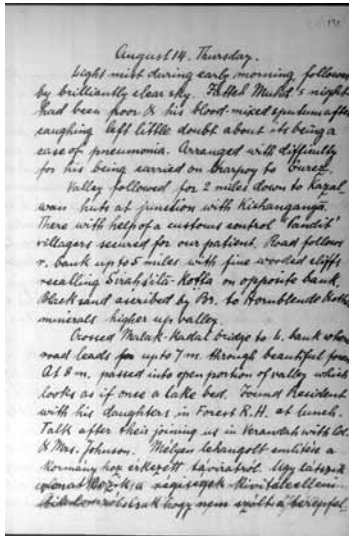 August 14. Thursday.
Light mist during early morning, followed
by brilliantly clear sky. Fatteh Muhd's night
had been poor & his blood-mixed sputum after
coughing left little doubt about its being a
case of pneumonia. Arranged with difficulty
for his being carried on charpoy to Gurez.
Valley followed for 2 miles down to Kazal-
wan huts at junction with Kishanganga.
There with help of a customs control 'Pandit'
villagers secured for our patient. Road follows
r. bank up to 5 miles with fine wooded cliffs
recalling Sirahsila-Kotla on opposite bank.
Black sand ascribed by Br. to Hornblende & other
minerals higher up valley.
Crossed Malak-Kadal bridge to l. bank where
road leads for up to 7 m. through beautiful forest.
At 8 m. passed into open portion of valley which
looks as if once a lake bed. Found Resident
with his daughters in Forest R.H. at lunch.
Talk after their joining us in Verandah with Col.
& Mrs. Johnson. Mélyen lehangolt említése a
kormányhoz érkezett táviratról. Úgy látszik
a régiségek kivitele elleni
csak hogy nem szólt a